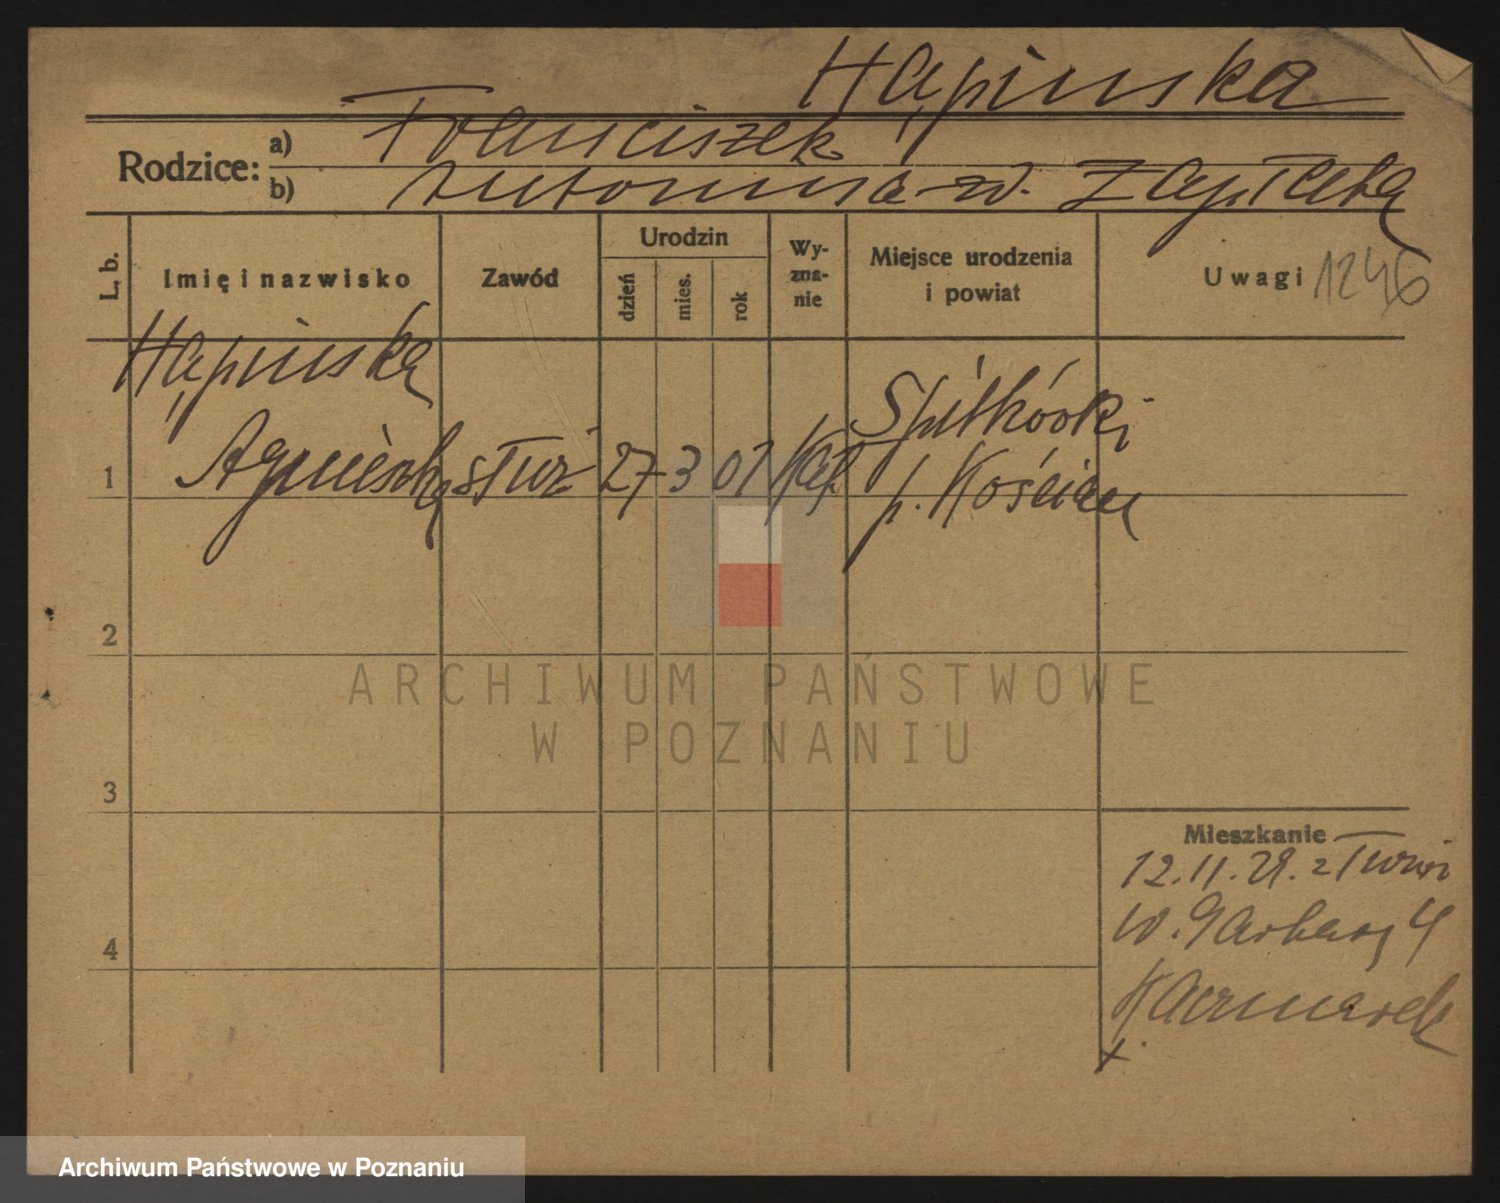 Hąpińska
Rodzice:
a) Franciszek
b) Antonina zd. Zapłatka
L, b.
Imię i nazwisko
Zawód
Urodzin
dzień
mies.
rok
Wy-
zna-
nie
Miejsce urodzenia
i powiat
Uwagi 1246
Hąpińska
1 Agnieszka służ 27 3 01 kat. Spitkówki
p. Kościan
2
3
4
Mieszkanie
12.11.29. z Turwi
W. Garbary 4
Kaczmarek
ARCHIWUM PAŃSTWOWE
W POZNANIU
Archiwum Państwowe w Poznaniu